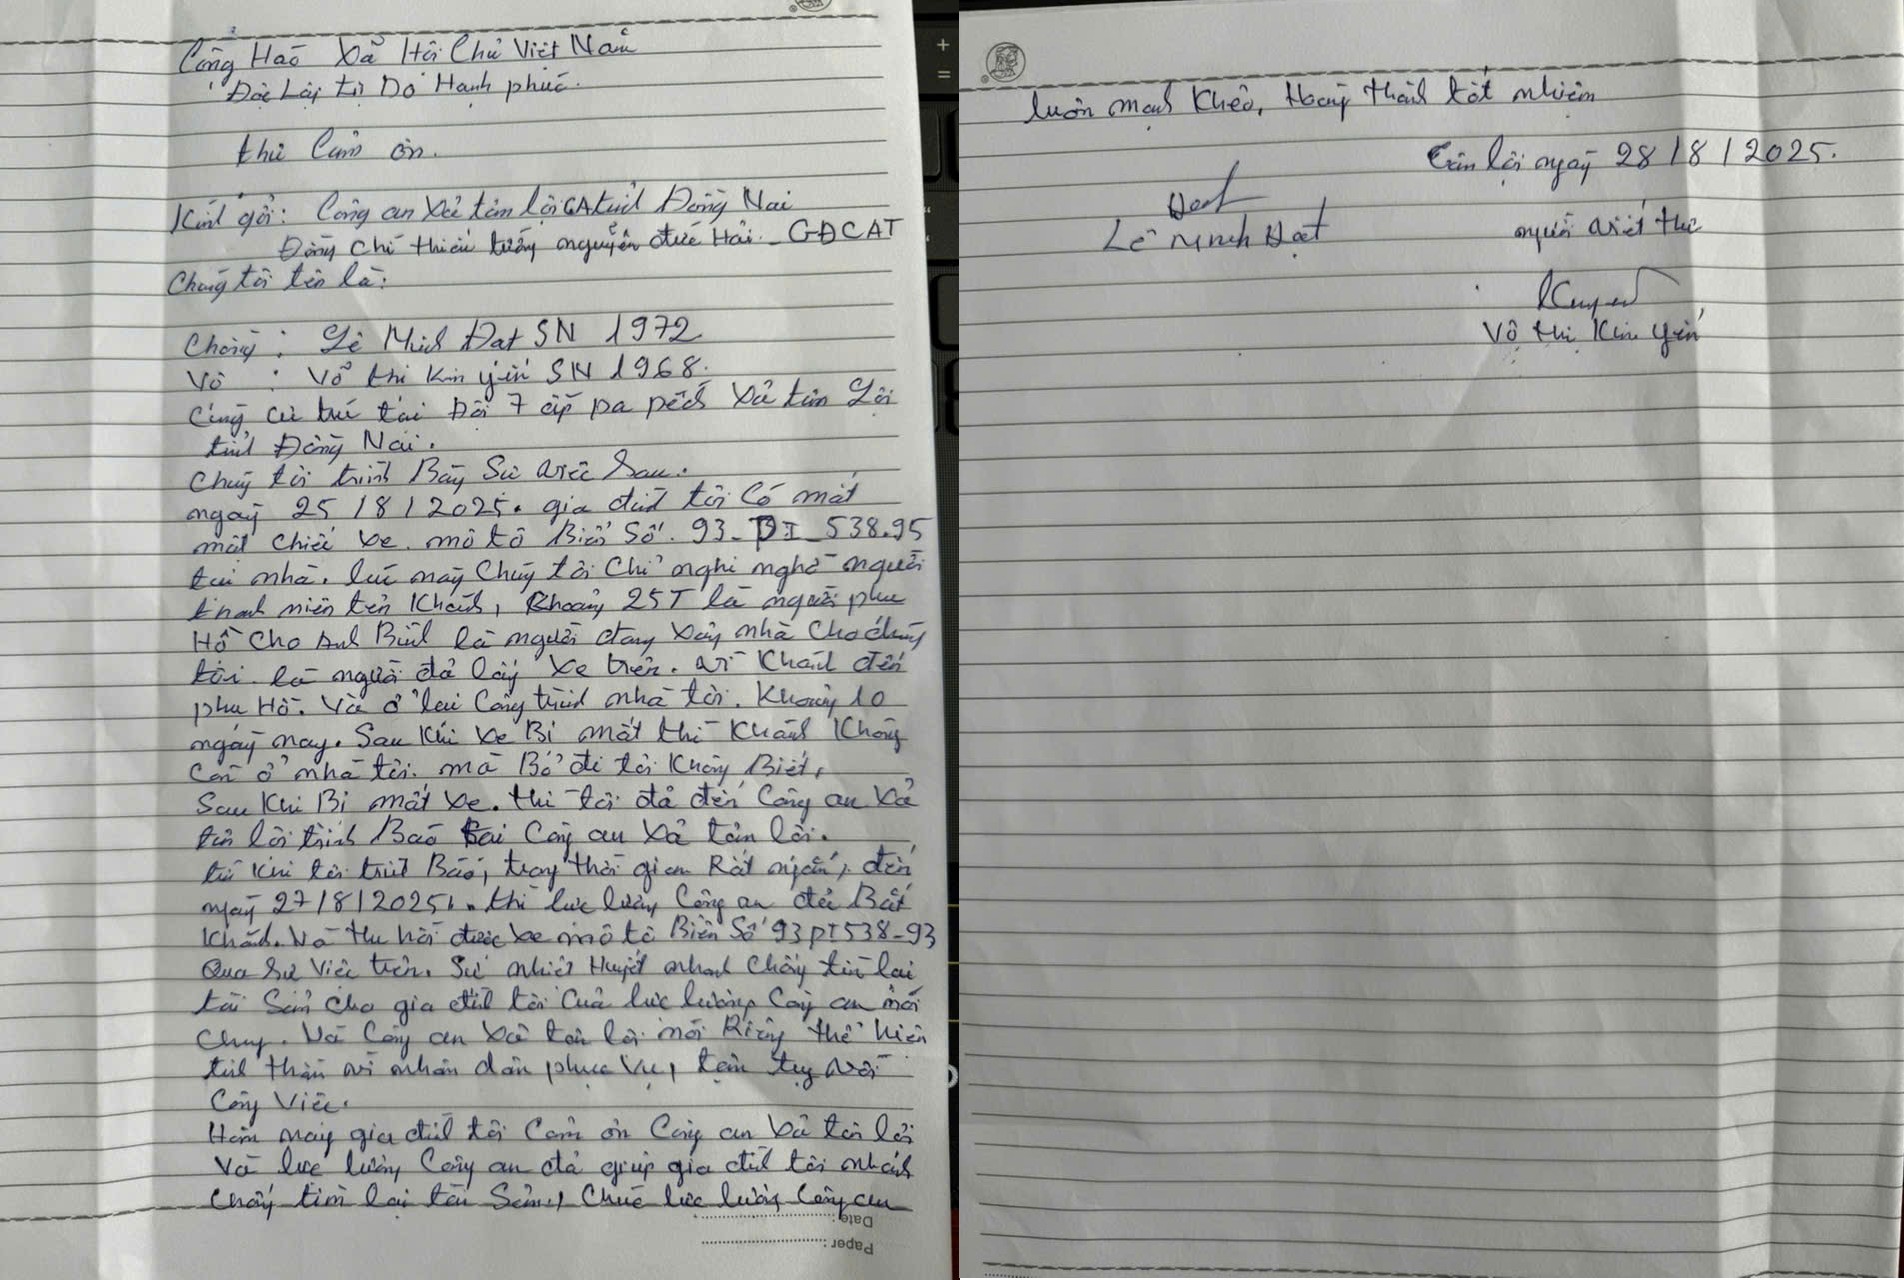 Công Hào Xã Hội Chủ Việt Nam
Độc Lập tự Do Hạnh phúc.
thư Cảm ơn.
Kính gởi: Công an xã tân lợi CA tỉnh Đồng Nai
Đồng chí thiếu tướng nguyễn đức Hải _ GĐCAT
Chúng tôi tên là:
Chồng: Lê Minh Đạt SN 1972
Vợ : Võ thị Kim yến SN 1968.
Cùng cư trú tại Đội 7 ấp pa pếch xã tân Lợi
tỉnh Đồng Nai.
Chúng tôi trình Bày Sự việc Sau.
ngày 25/8/2025. gia đình tôi Có mất
một chiếc xe mô tô Biển Số. 93_ _538.95
tại nhà. lúc này Chúng tôi Chỉ nghi ngờ người
thanh niên tên Khánh, Khoảng 25T là người phụ
Hồ Cho Anh Bình là người đang xây nhà Cho chúng
tôi là người đã lấy xe trên. vì Khánh đến
phụ Hồ. Và ở lại Công trình nhà tôi. Khoảng 10
ngày nay. Sau Khi xe Bị mất thì Khánh Không
Còn ở nhà tôi. mà Bỏ đi tôi Không Biết,
Sau Khi Bị mất xe. thì tôi đã đến Công an xã
tân lợi trình Báo tại Công an xã tân lợi.
từ Khi tôi trình Báo, trong thời gian Rất ngắn, đến
ngày 27/8/2025. thì lực lượng Công an đã Bắt
Khánh. Và thu hồi được xe mô tô Biển Số 93 538-93
Qua Sự Việc trên. Sự nhiệt Huyết nhanh Chóng tìm lại
tài Sản cho gia đình tôi Của lực lượng Công an nói
chung. Và Công an xã tân lợi nói Riêng thể hiện
tinh thần vì nhân dân phục vụ, tận tụy với
Công Việc.
Hôm nay gia đình tôi Cảm ơn Công an xã tân lợi
Và lực lượng Công an đã giúp gia đình tôi nhanh
chóng tìm lại tài Sản, Chúc lực lượng Công an
Date:
Paper:
luôn mạnh Khỏe, Hoàng thành tốt nhiệm
Tân lợi ngày 28/8/2025.
Đạt
Lê Minh Đạt
người viết thư
Võ thị Kim yến